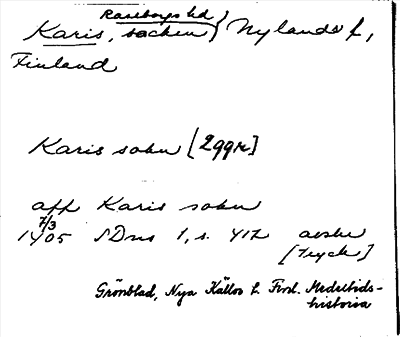 Raseborgs hd
Karis, socken, Nylands l,
Finland
Karis sokn [2ggr]
aff Karis sokn
7/3
1405 SDns 1, s. 412 avskr
[tryck,]
Grönblad, Nya Källor t. Finl. Medeltids-
historia